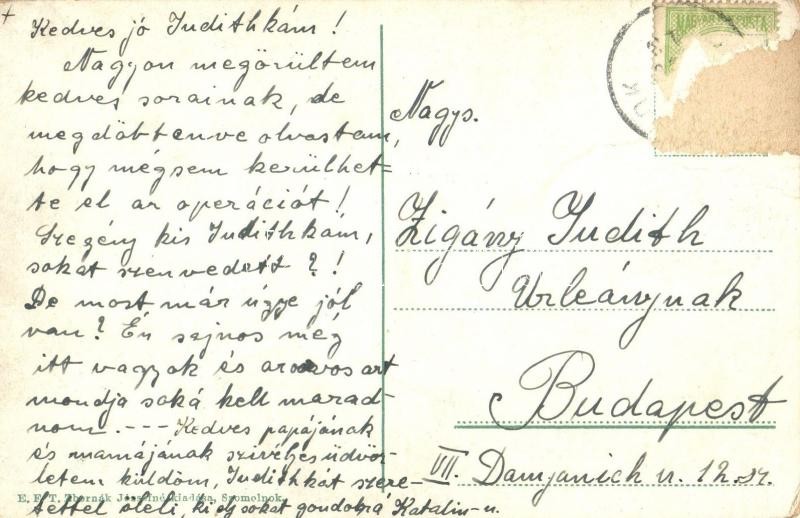 Kedves jó Judithkám!
Nagyon megörültem
kedves sorainak, de
megdöbbenve olvastam,
hogy mégsem kerülhet-
te el az operációt!
Szegény kis Judithkám,
sokat szenvedett?!
De most már ugye jól
van? Én sajnos még
itt vagyok és az orvos azt
mondja soká kell marad-
nom. --- Kedves papájának
és mamájának szívélyes üdvöz-
letem küldöm, Judithkát szere-
tettel öleli, ki oly sokat gondol rá Katalin
MAGYAR POSTA
Nagys.
Zigány Judith
Urleánynak
Budapest
VII. Damjanich u. 12. sz.
E. F. T. Zbornák Józsefné kiadása, Szomolnok.